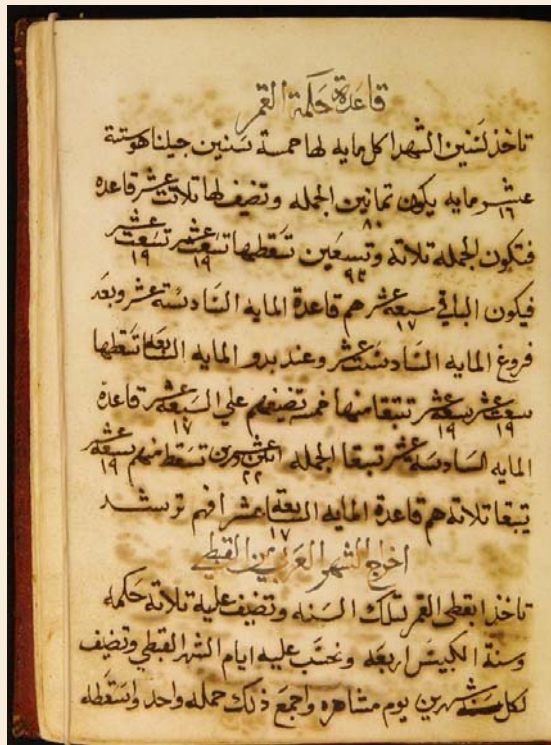 قاعدة حكمة القمر
تاخذ لسنين الشهدا كل مايه لها خمسة سنين جيلنا هو ستة
عشر مايه يكون تمانين الجمله وتضيف لها تلاتت عشر قاعده
١٦ ٨٠
فتكون الجمله تلاته وتسعين تسقطها تسعت عشر تسعت عشر
٩٣ ١٩ ١٩
فيكون الباقي سبعة عشر هم قاعدة المايه السادسته عشر وبعد
١٧
فروغ المايه السادست عشر وعند بدو المايه السابعه تسقطها
تسعت عشر تسعه عشر تتبقا منها خمسه تضيفهم علي السبعه عشر قاعدة
١٩ ١٩ ١٧
المايه السادسه عشر تبقا الجمله اتنين وعشرين تسقط منهم تسعة عشر
١٩ ٢٢ ١٩
يتبقا تلاته هم قاعدة المايه السابعه عشر افهم ترشد
١٧
اخراج الشهر العربي من القبطي
تاخذ ابقطي القمر لتلك السنه وتضيف عليه تلاته حكمه
وسنة الكبيس اربعه وتحسب عليه ايام الشهر القبطي وتضيف
لكل شهرين يوم مشاهره واجمع ذلك جمله واحد واسقطه